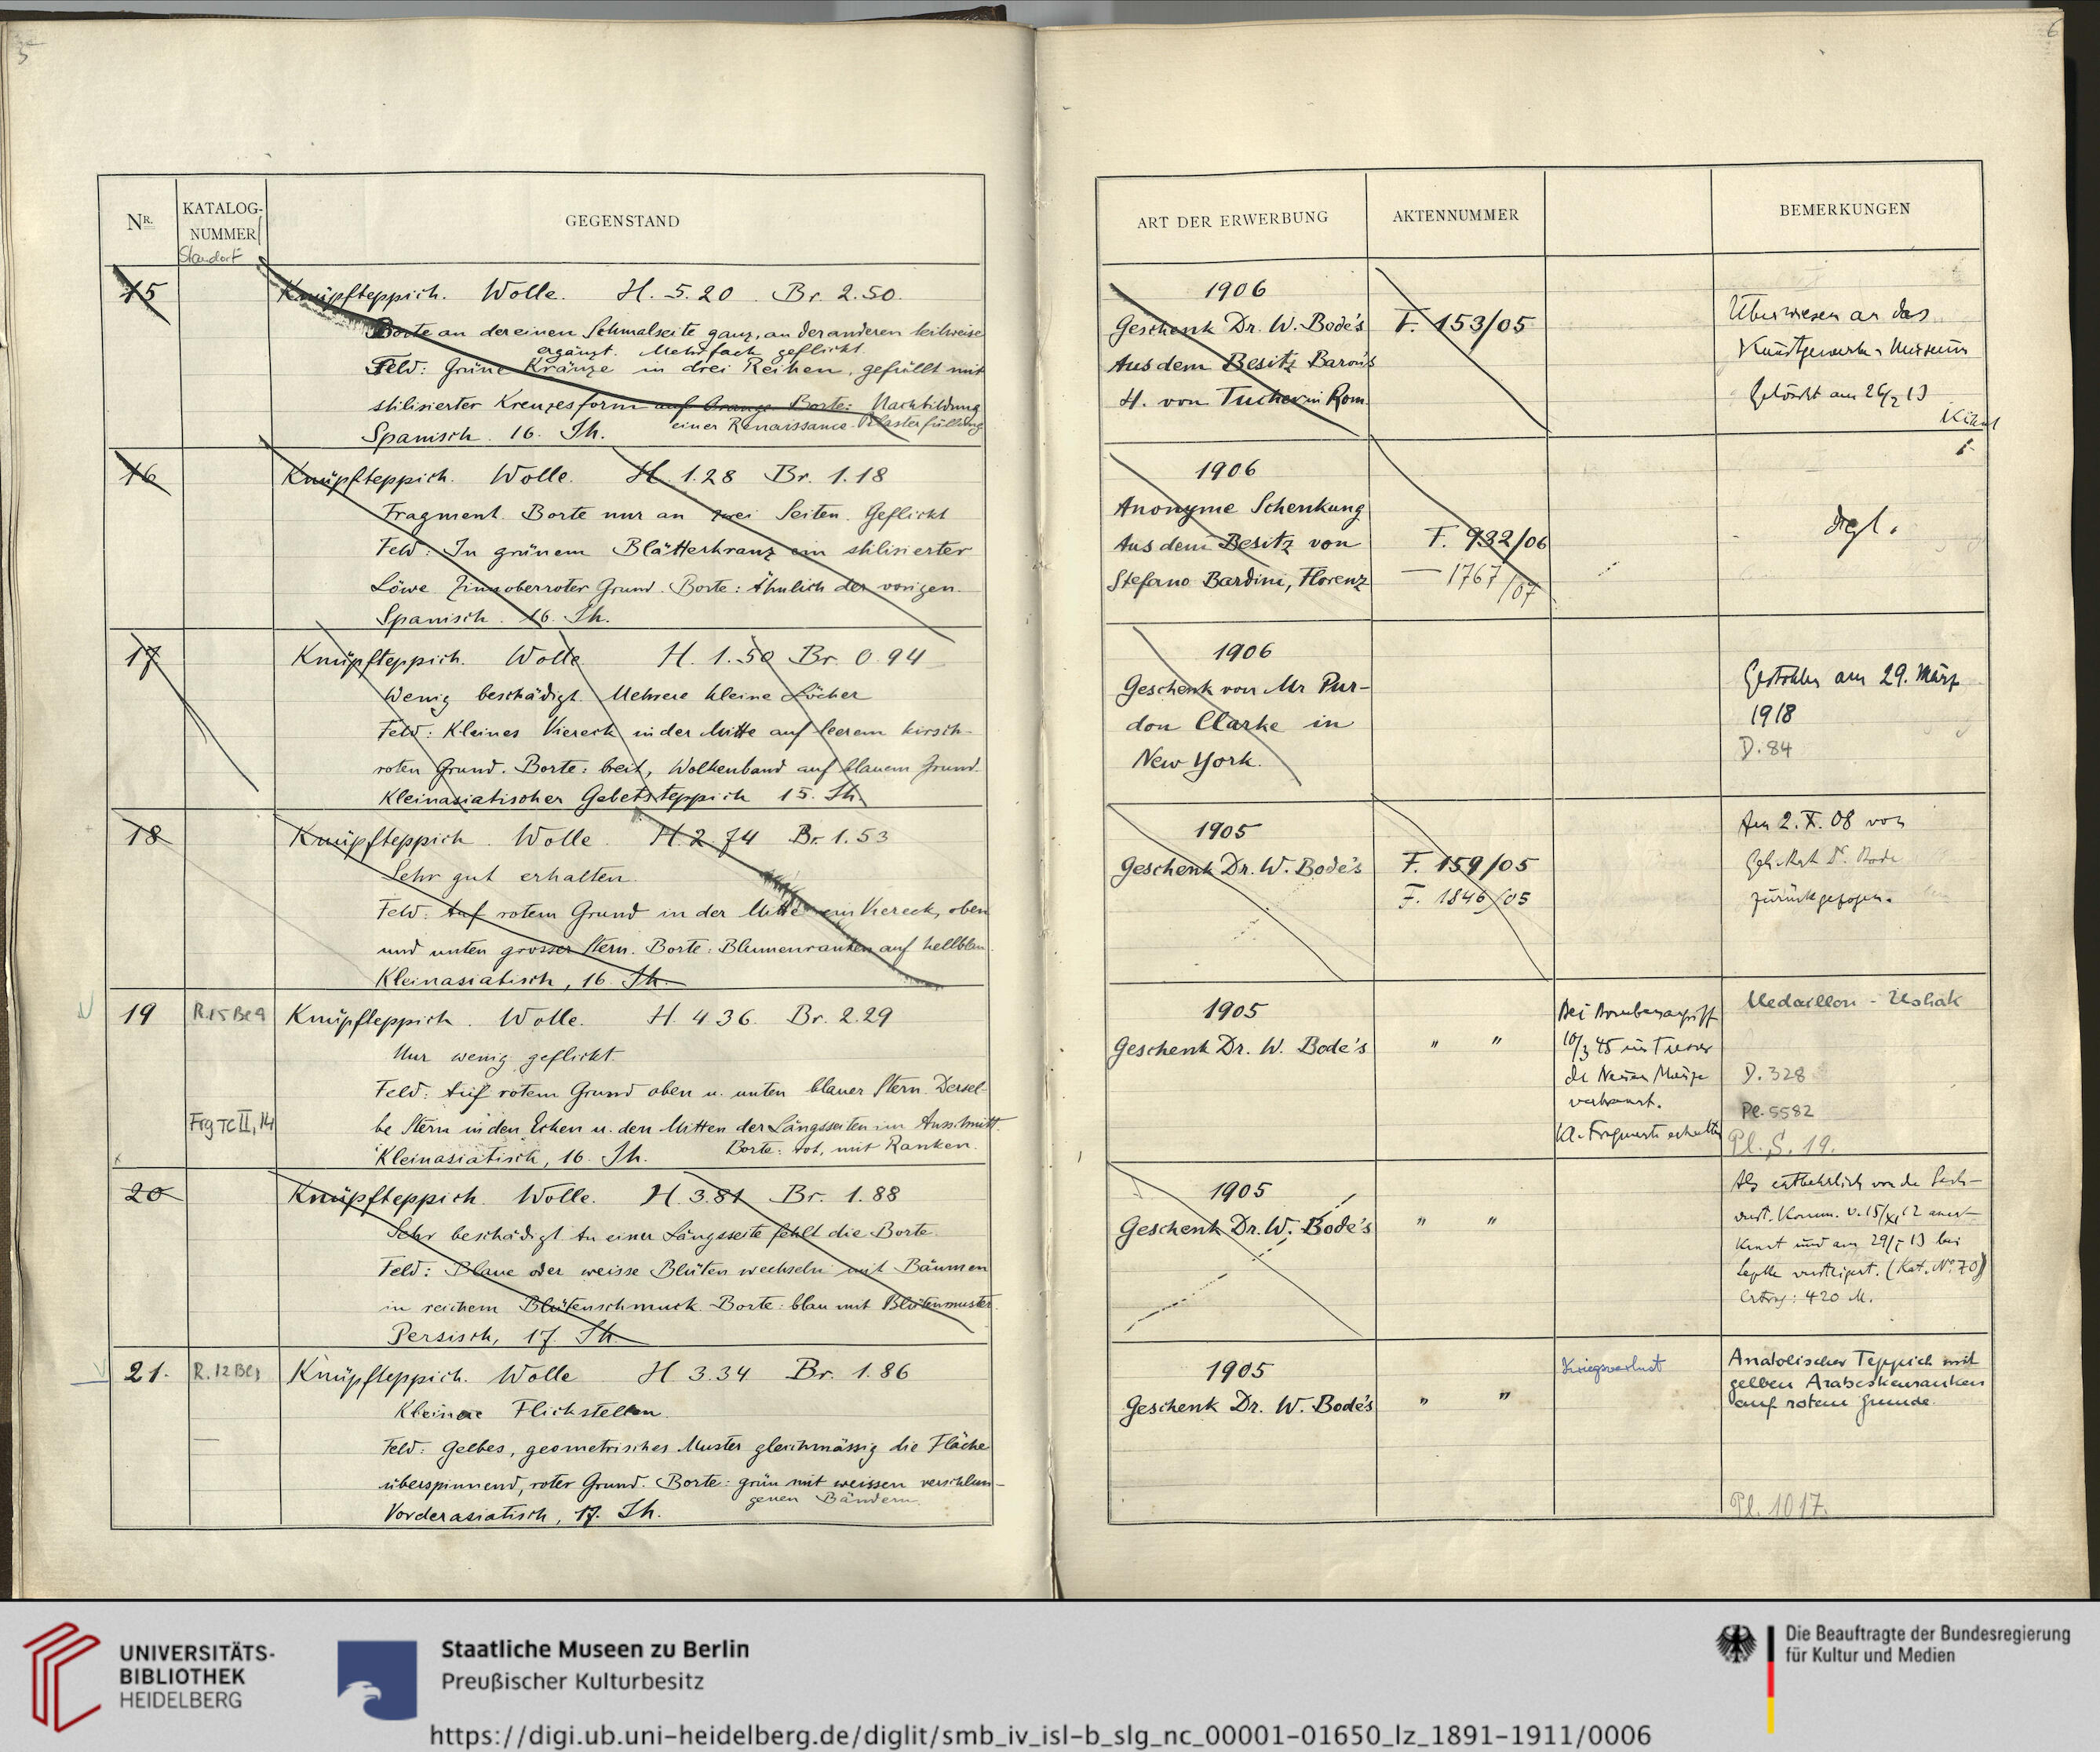 5
Nr.
KATALOG-
NUMMER
Standort
GEGENSTAND
15
Knüpfteppich. Wolle. H. 5.20. Br. 2.50.
Borte an der einen Schmalseite ganz, an der anderen teilweise
ergänzt. Mehrfach geflickt.
Feld: Grüne Kränze in drei Reihen, gefüllt mit
stilisierter Kreuzesform auf Orange. Borte: Nachbildung
einer Renaissance-Pilasterfüllung
Spanisch. 16. Jh.
16
Knüpfteppich. Wolle. H. 1.28 Br. 1.18
Fragment. Borte nur an zwei Seiten. Geflickt
Feld: In grünem Blätterkranz ein stilisierter
Löwe. Zinnoberroter Grund. Borte: Ähnlich der vorigen.
Spanisch. 16. Jh.
17
Knüpfteppich. Wolle H. 1.50 Br. 0.94
Wenig beschädigt. Mehrere kleine Löcher
Feld: Kleines Viereck in der Mitte auf leerem kirsch-
roten Grund. Borte: breit, Wolkenband auf blauem Grund.
Kleinasiatischer Gebetsteppich 15. Jh.
18
Knüpfteppich. Wolle. H. 2.74 Br. 1.53
Sehr gut erhalten.
Feld: Auf rotem Grund in der Mitte ein Viereck, oben
und unten grosser Stern. Borte: Blumenranken auf hellblau.
Kleinasiatisch, 16. Jh.
19
R.15 Be 9
Knüpfteppich. Wolle. H. 4.36. Br. 2.29
Nur wenig geflickt.
Feld: Auf rotem Grund oben u. unten blauer Stern. Dersel-
Frg TC II, 14
be Stern in den Ecken u. den Mitten der Längsseiten im Ausschnitt.
Borte: rot, mit Ranken.
Kleinasiatisch, 16. Jh.
20
Knüpfteppich. Wolle. H. 3.81 Br. 1.88
Sehr beschädigt. An einer Längsseite fehlt die Borte.
Feld: Blaue oder weisse Blüten wechseln mit Bäumen
in reichem Blütenschmuck. Borte: blau mit Blütenmuster.
Persisch, 17. Jh.
21.
R. 12 Be
Knüpfteppich. Wolle H 3.34 Br. 1.86
Kleinere Flickstellen.
Feld: Gelbes, geometrisches Muster gleichmässig die Fläche
überspinnend, roter Grund. Borte: grün mit weissen verschlun-
genen Bändern.
Vorderasiatisch, 17. Jh.
6
ART DER ERWERBUNG
AKTENNUMMER
BEMERKUNGEN
1906
Geschenk Dr. W. Bode's
Aus dem Besitz Baron's
H. von Tucher in Rom.
F. 153/05
Überwiesen an das
Kunstgewerbe-Museum
Gelöscht am 26/2 13
Kühnel
1906
Anonyme Schenkung
Aus dem Besitz von
Stefano Bardini, Florenz
F. 932/06
— 1767/07
dsgl.
1906
Geschenk von Mr Pur-
don Clarke in
New York.
Gestohlen am 29. März
1918
D. 84
1905
Geschenk Dr. W. Bode's
F. 159/05
F. 1846/05
Am 2. X. 08 von
Geh. Rat Dr. Bode
zurückgezogen.
1905
Geschenk Dr. W. Bode's
" "
Bei Bombenangriff
10/3 45 im Tresor
der Neuen Münze
verbrannt.
Kl. Fragmente erhalten
Medaillon-Ushak
D. 328
Pl. 5582
Pl. S. 19.
1905
Geschenk Dr. W. Bode's
" "
Als entbehrlich von der Sach-
verst. Komm. v. 15/XI 12 aner-
kannt und am 29/ 13 bei
Lepke versteigert. (Kat. No 70)
Ertrag: 420 M.
1905
Geschenk Dr. W. Bode's
" "
Kriegsverlust
Anatolischer Teppich mit
gelben Arabeskenranken
auf rotem Grunde.
Pl. 1017.
UNIVERSITÄTS-
BIBLIOTHEK
HEIDELBERG
Staatliche Museen zu Berlin
Preußischer Kulturbesitz
Die Beauftragte der Bundesregierung
für Kultur und Medien
https://digi.ub.uni-heidelberg.de/diglit/smb_iv_isl-b_slg_nc_00001-01650_lz_1891-1911/0006